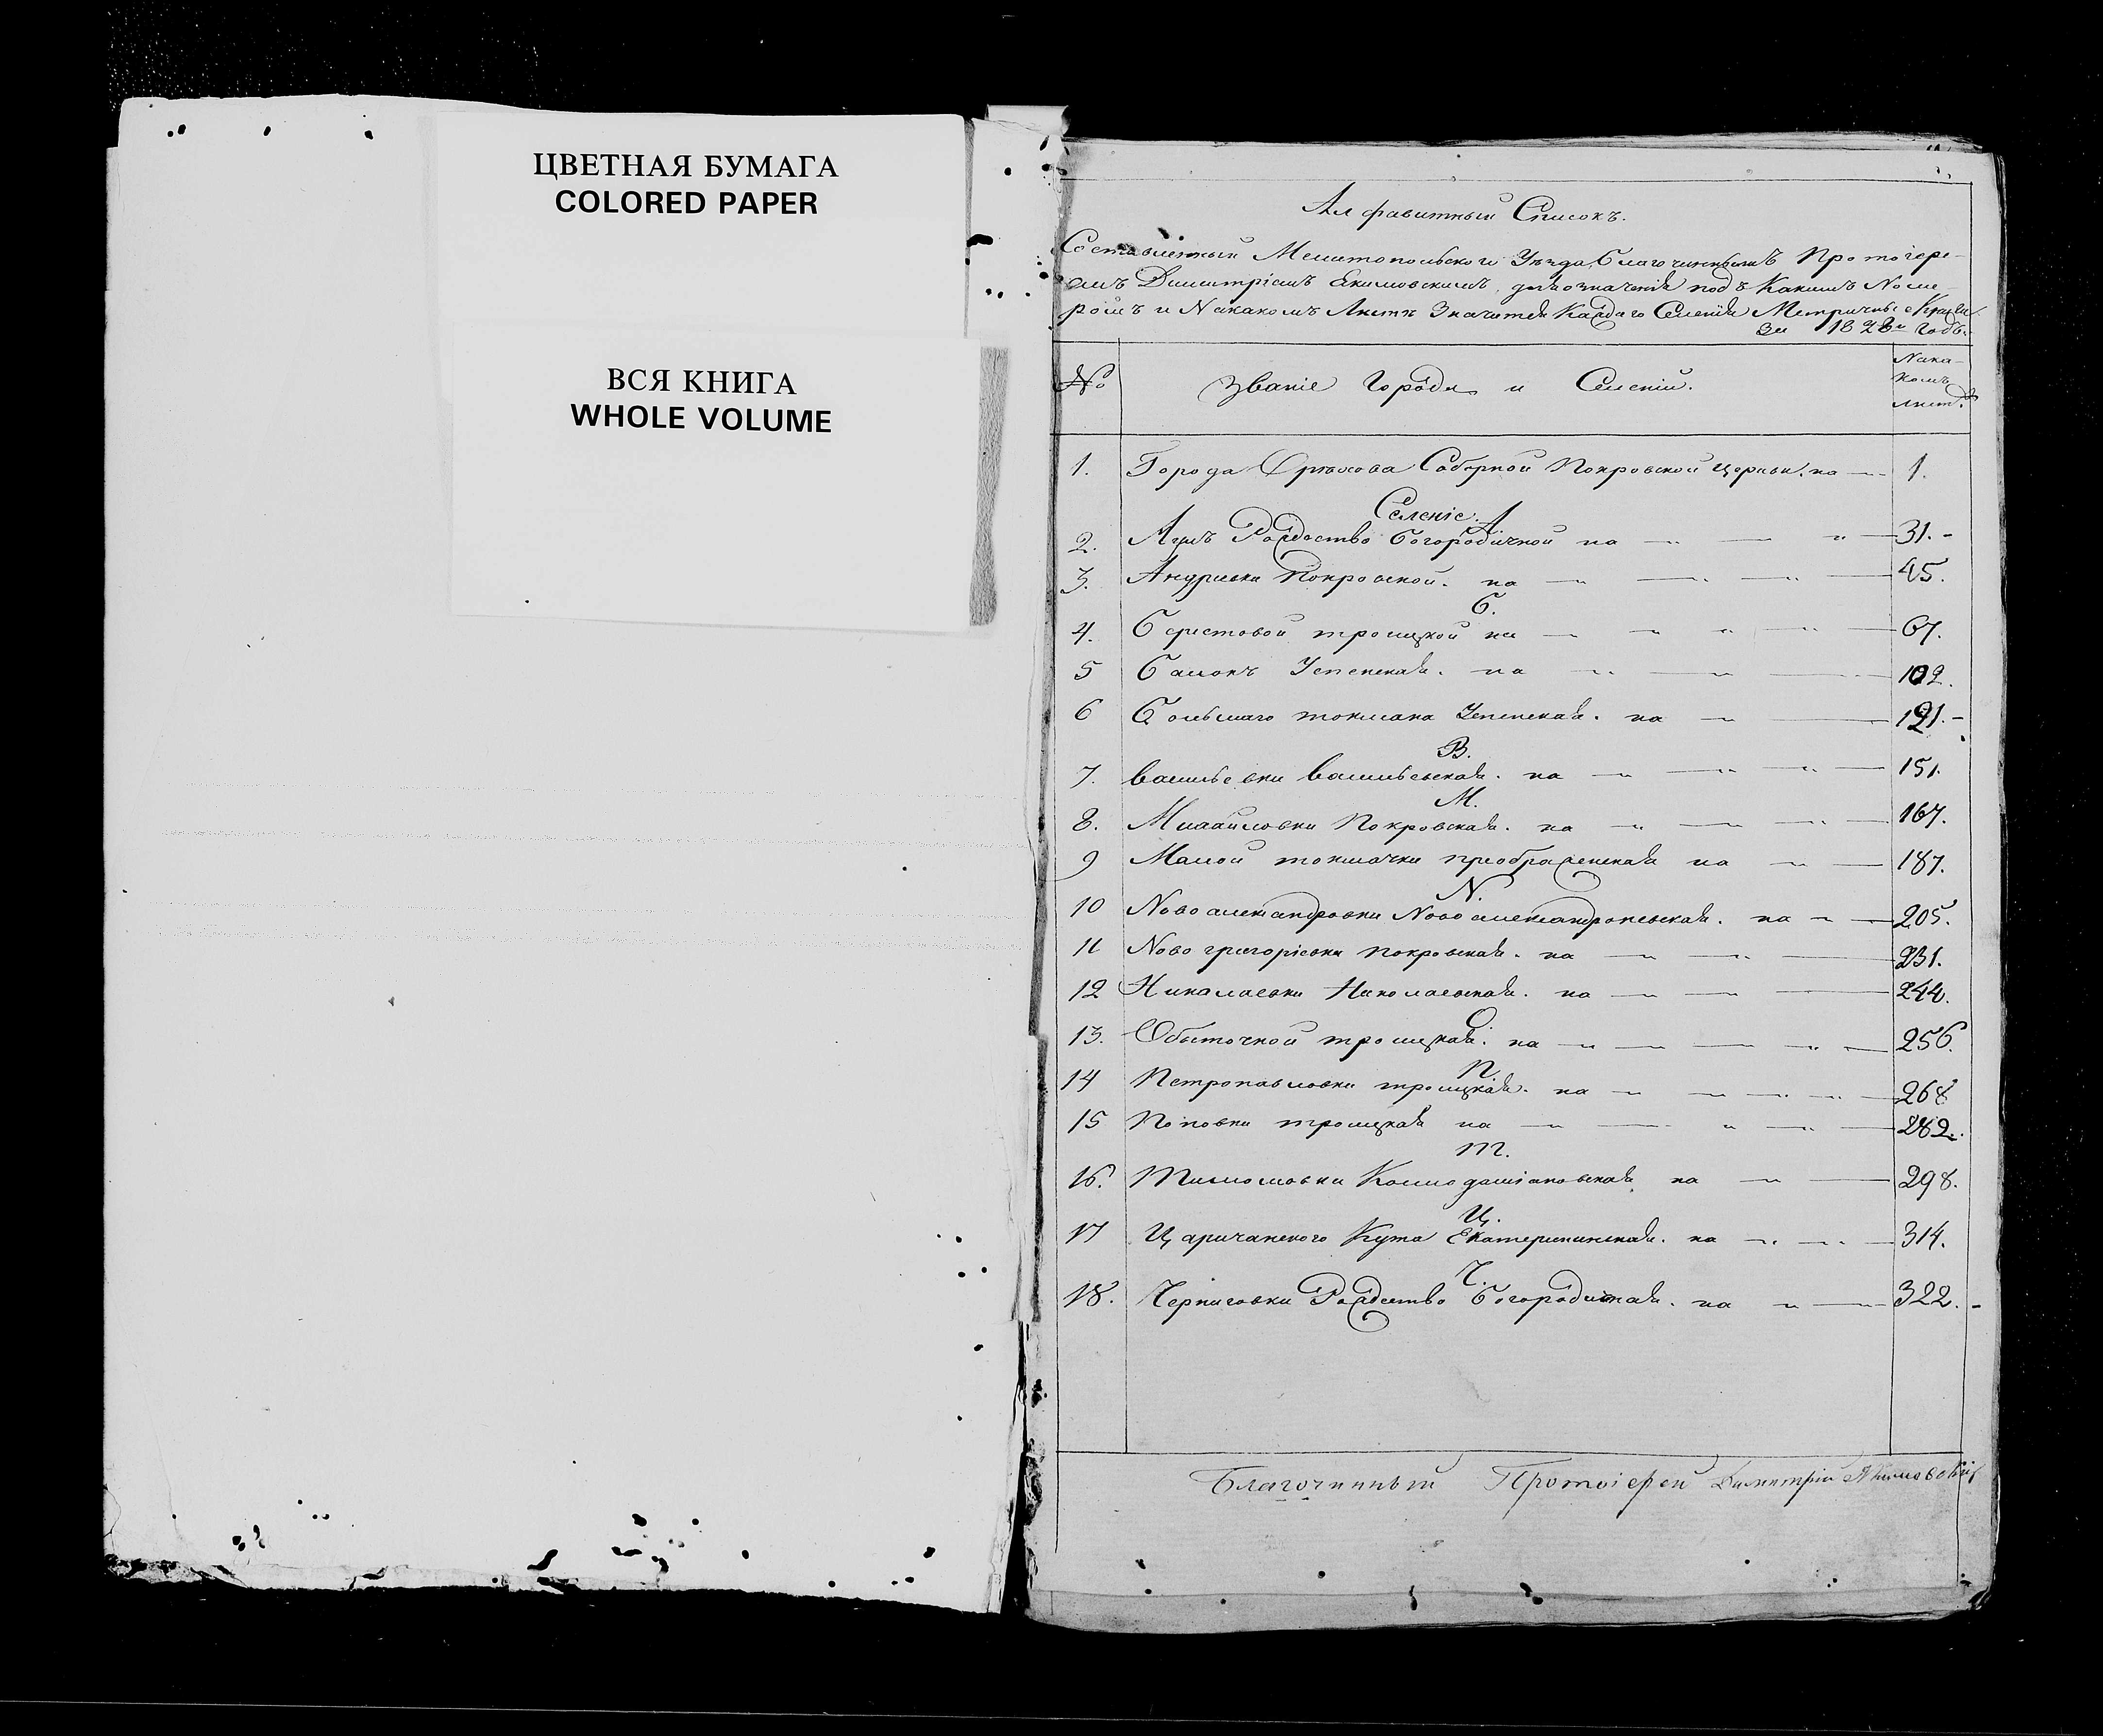 ЦВЕТНАЯ БУМАГА
COLORED PAPER
ВСЯ КНИГА
WHOLE VOLUME
Алфавитный Списокъ.
Составленный Мелитопольского Уѣзда, Благочиннымъ Протоіере-
емъ Димитріемъ Екимовскимъ, для означенія подъ Какимъ Номе-
ромъ и Накакомъ Листѣ Значится Каждаго Селенія Метричные Книги
за 1828й Годъ.
№ Званіе Города и Селеній. Нака-
комъ
листѣ.
1. Города Орѣхова Соборной Покровской церкви. на 1.
Селеніе. А.
2. Рождество Богородичной на 31.
3. Андривки Покровской. на 45.
Б.
4. Берестовой троицкой на 67.
5 Балокъ Успенская. на 102.
6 Большаго токмака Успенская. на 121.
В.
7. Васильевки Васильевская. на 151.
М.
8. Михайловки Покровская. на 167.
9 Малой токмачки преображенская на 187.
N.
10 Nовоалександровки Nовоалександроневская. на 205.
11 Nово григоріевки покровская. на 231.
12 Николаевки Николаевская. на 244.
О.
13. Обыточной троицкая. на 256.
П.
14 Петропавловки троицкая. на 268
15 Поповки троицкая на 282.
Т.
16. Тимошовки Космодаміановская на 298.
Ц.
17 Царичанского Кута Екатерининская. на 314.
Ч.
18. Черниговки Рождество Богородичная. на 322.
Благочинный Протоіерей Димитрій Якимовскій